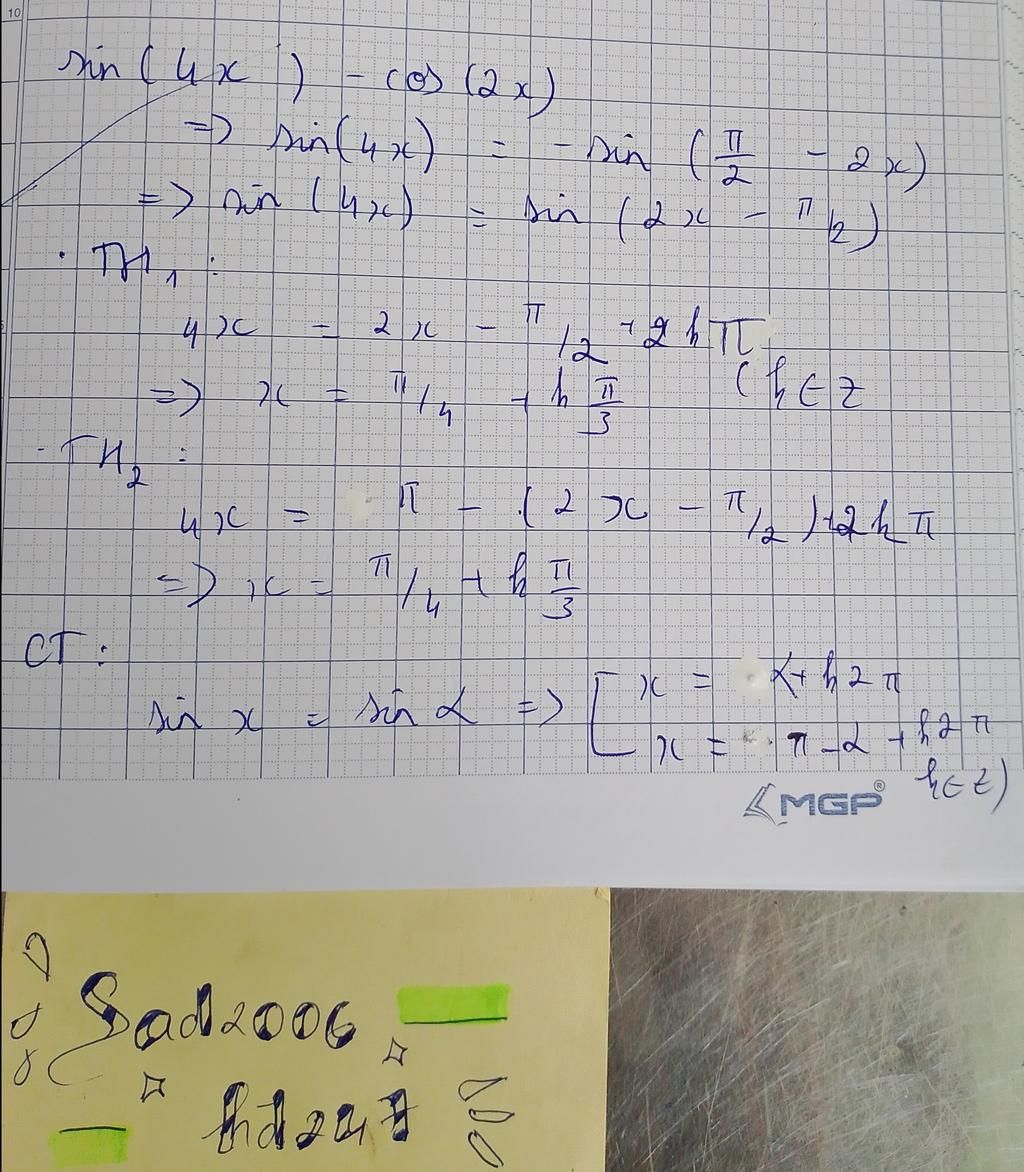 10
sin(4x) - cos(2x)
=> sin(4x) = -sin (π/2 - 2x)
=> sin(4x) = sin (2x - π/2)
· TH1 :
4x = 2x - π/2 + 2kπ
=> x = π/4 + k π/3 (k ∈ Z
- TH2 :
4x = π - (2x - π/2) + 2kπ
=> x = π/4 + k π/3
CT :
sin x = sin α => [ x = α + k2π
x = π - α + k2π
k ∈ Z)
MGP®
Sad2006
hd247